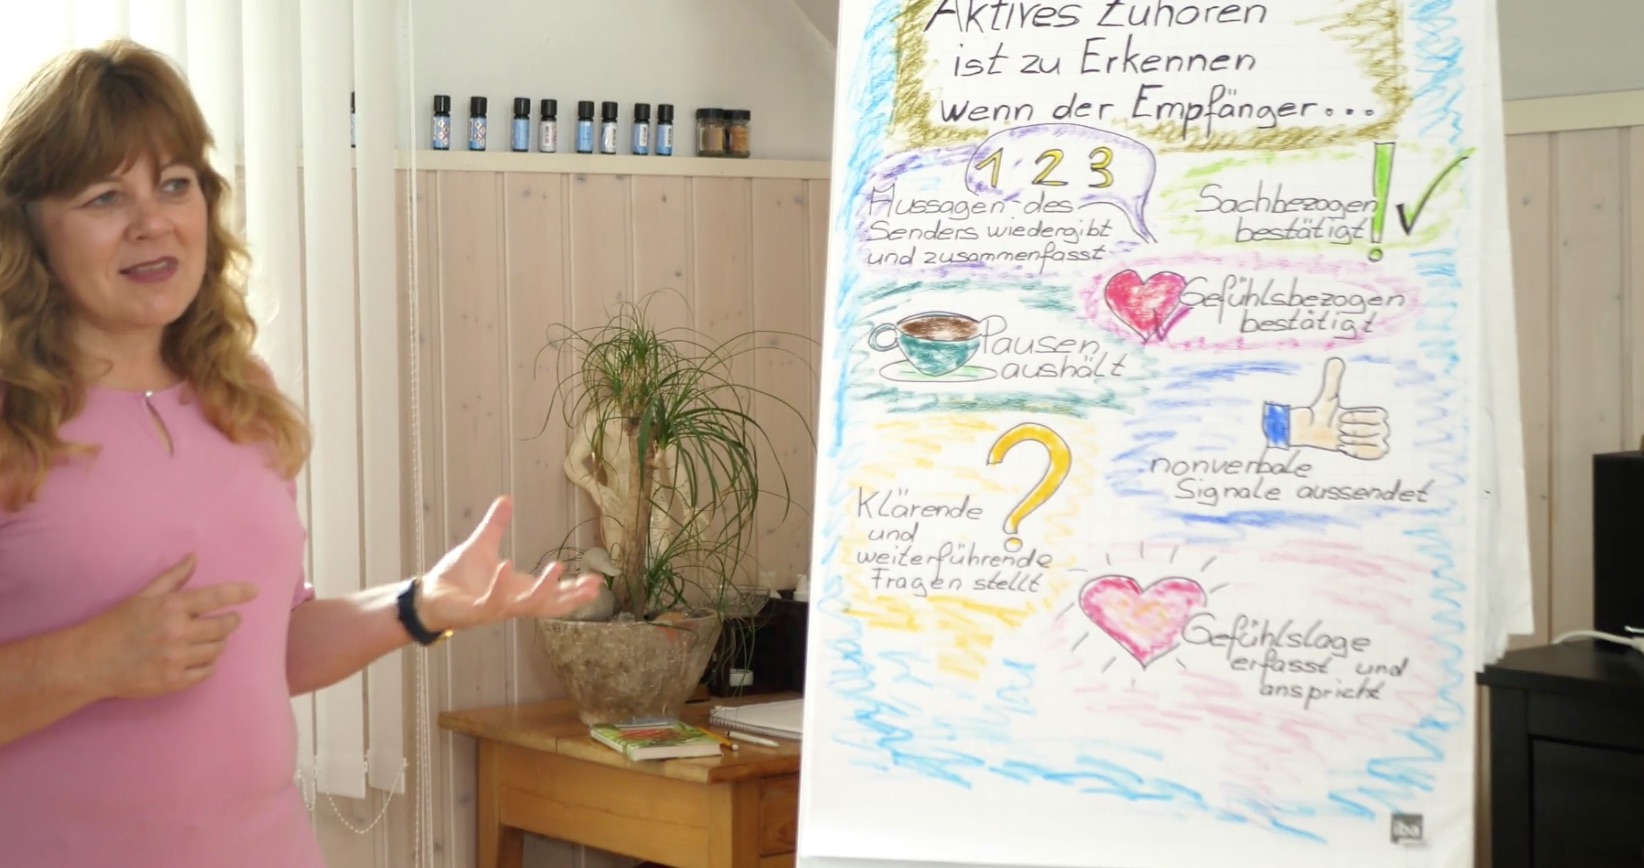 Aktives Zuhören
ist zu Erkennen
wenn der Empfänger...
1 2 3
Aussagen des
Senders wiedergibt
und zusammenfasst
Sachbezogen
bestätigt
Gefühlsbezogen
bestätigt
Pausen
aushält
nonverbale
Signale aussendet
Klärende
und
weiterführende
Fragen stellt
Gefühlslage
erfasst und
anspricht
iba